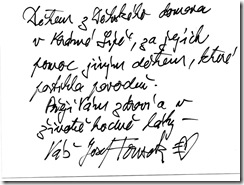 Dětem z Dětského domova
v Krásné Lípě, za jejich
pomoc jiným dětem, které
postihla povodeň.
Přeji Vám zdraví a v
životě hodně lásky –
Váš Josef